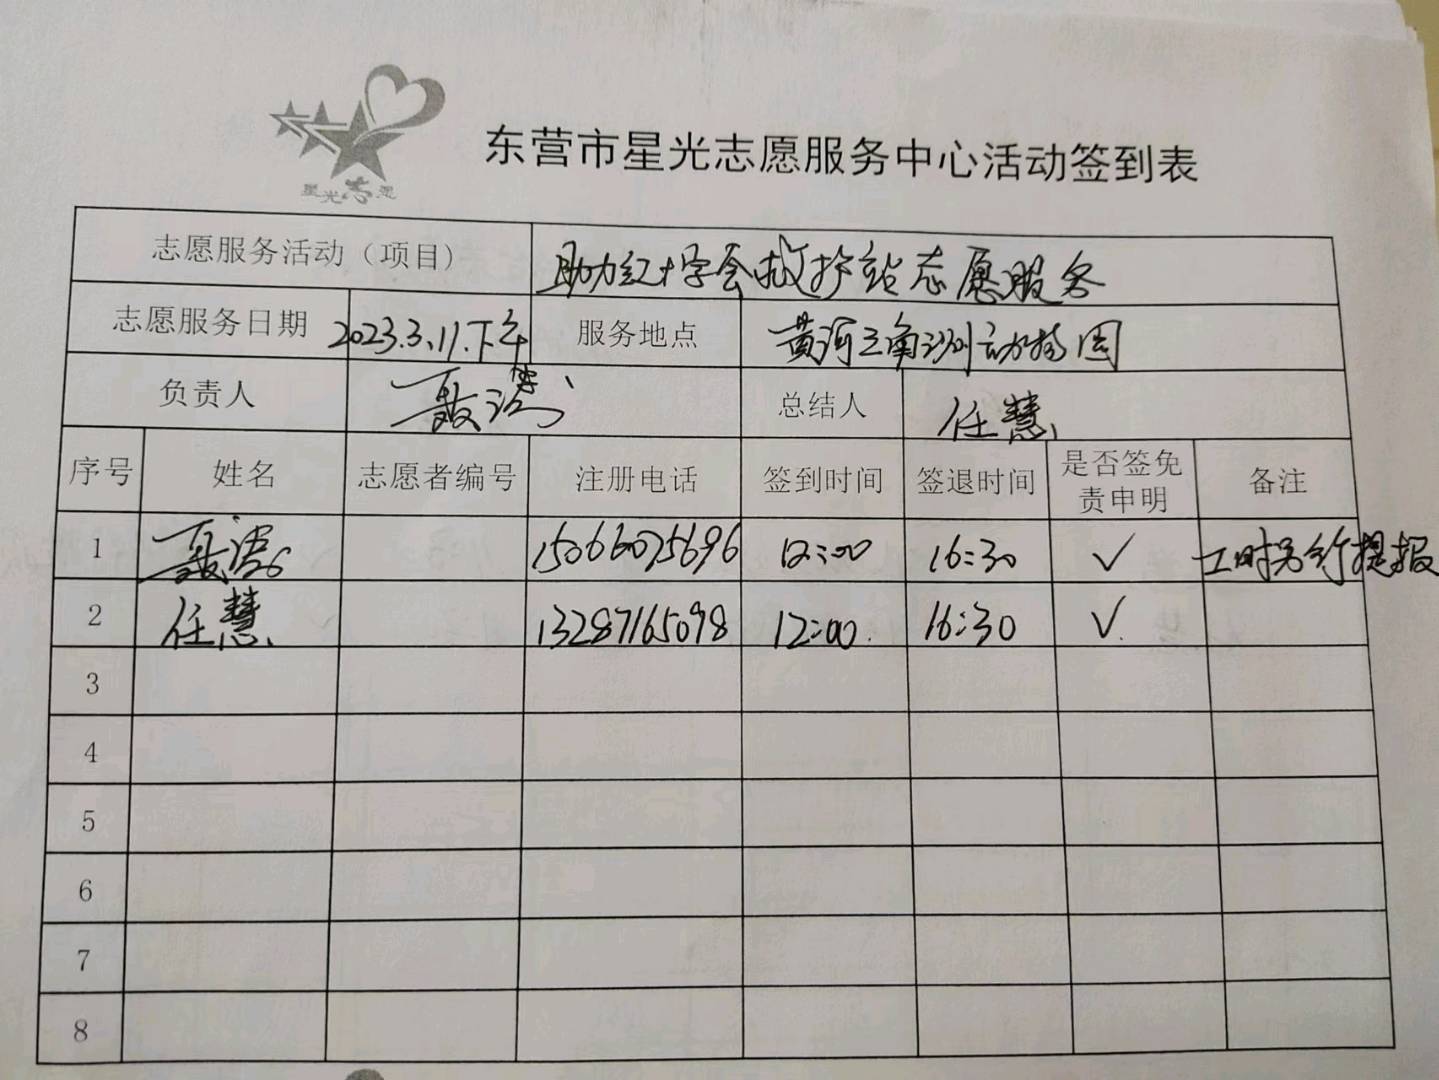 星光志愿
东营市星光志愿服务中心活动签到表
志愿服务活动（项目） 助力红十字会救护站志愿服务
志愿服务日期 2023.3.11.下午 服务地点 黄河三角洲动物园
负责人 聂 总结人 任慧
序号 姓名 志愿者编号 注册电话 签到时间 签退时间 是否签免责申明 备注
1 聂 15066075696 12:00 16:30 ✓ 工时另行提报
2 任慧 13287165098 12:00 16:30 ✓
3
4
5
6
7
8